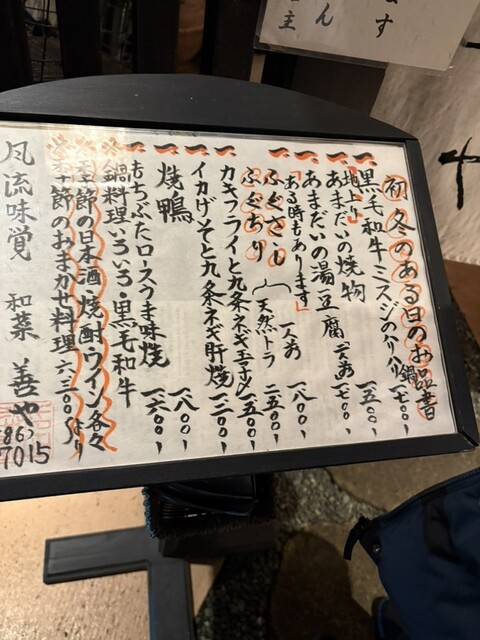 初冬のある日のお品書
一、黒毛和牛ミスジのハリハリ鍋 一七〇〇、
一、地上ト あまだいの焼物 一五〇〇、
一、あまだいの湯豆腐 一人前 一七〇〇、
「ある時もあります」
一、ふぐさし 天然トラ 一人前 一八〇〇、
ふぐちり 二五〇〇、
一、カキフライと九条ネギ玉子〆 一五〇〇、
一、イカげそと九条ネギ肝焼 一三〇〇、
一、焼鴨 一八〇〇、
一、もちぶたロースうま味焼 一六〇〇、
※鍋料理いろいろ・黒毛和牛
※季節の日本酒・焼酎・ワイン各々
※季節のおまかせ料理 六、三〇〇、より
風流味覚 和菜 善や
861
7015
ます
ん
主